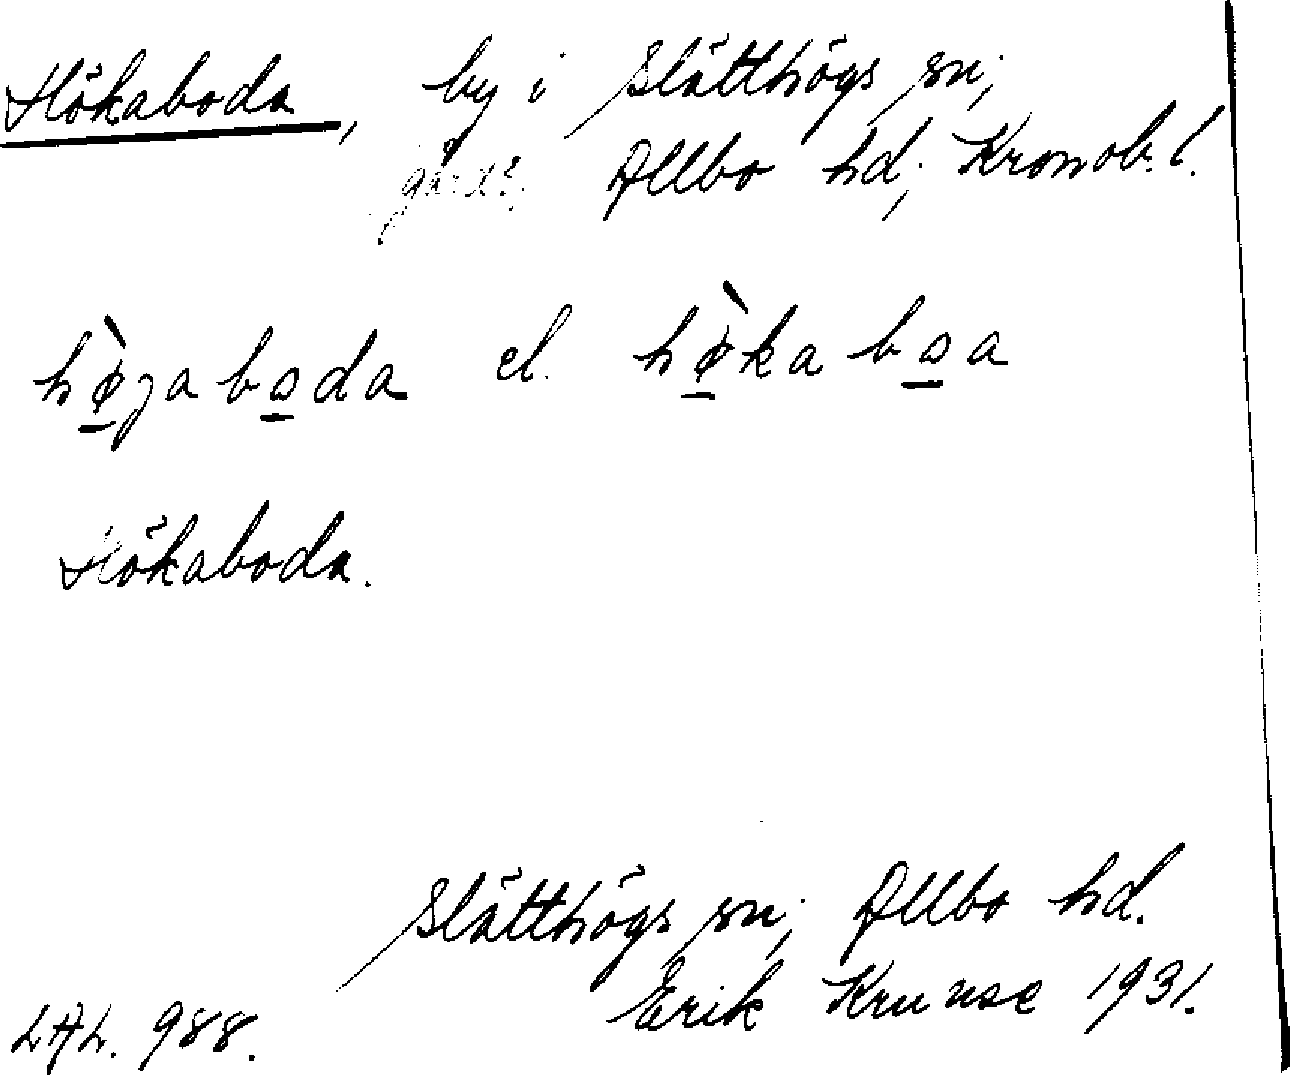 Hökaboda, by i Slätthögs sn;
Allbo hd; Kronob. l.
hø̀gaboda el. hø̀kaboa
Hökaboda.
Slätthögs sn; Allbo hd.
Erik Kruuse 1931.
LAL. 988.